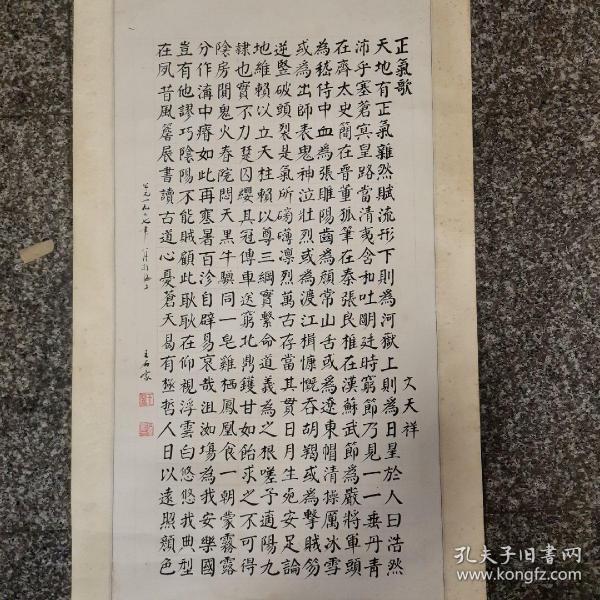 正氣歌
文天祥
天地有正氣雜然賦流形下則為河嶽上則為日星於人曰浩然
沛乎塞蒼冥皇路當清夷含和吐明廷時窮節乃見一一垂丹青
在齊太史簡在晉董狐筆在秦張良椎在漢蘇武節為嚴將軍頭
為嵇侍中血為張睢陽齒為顏常山舌或為遼東帽清操厲冰雪
或為出師表鬼神泣壯烈或為渡江楫慷慨吞胡羯或為擊賊笏
逆豎破頭裂是氣所磅礴凛烈萬古存當其貫日月生死安足論
地維賴以立天柱賴以尊三綱實繫命道義為之根嗟予遘陽九
隸也實不力楚囚纓其冠傳車送窮北鼎鑊甘如飴求之不可得
陰房闃鬼火春院閟天黑牛驥同一皂雞栖鳳凰食一朝蒙霧露
分作溝中瘠如此再寒暑百沴自辟易哀哉沮洳場為我安樂國
豈有他謬巧陰陽不能賊顧此耿耿在仰視浮雲白悠悠我典型
在夙昔風簷展書讀古道心憂蒼天曷有極哲人日以遠照顏色
公元一九八七年
孔夫子旧书网
www.kongfz.com